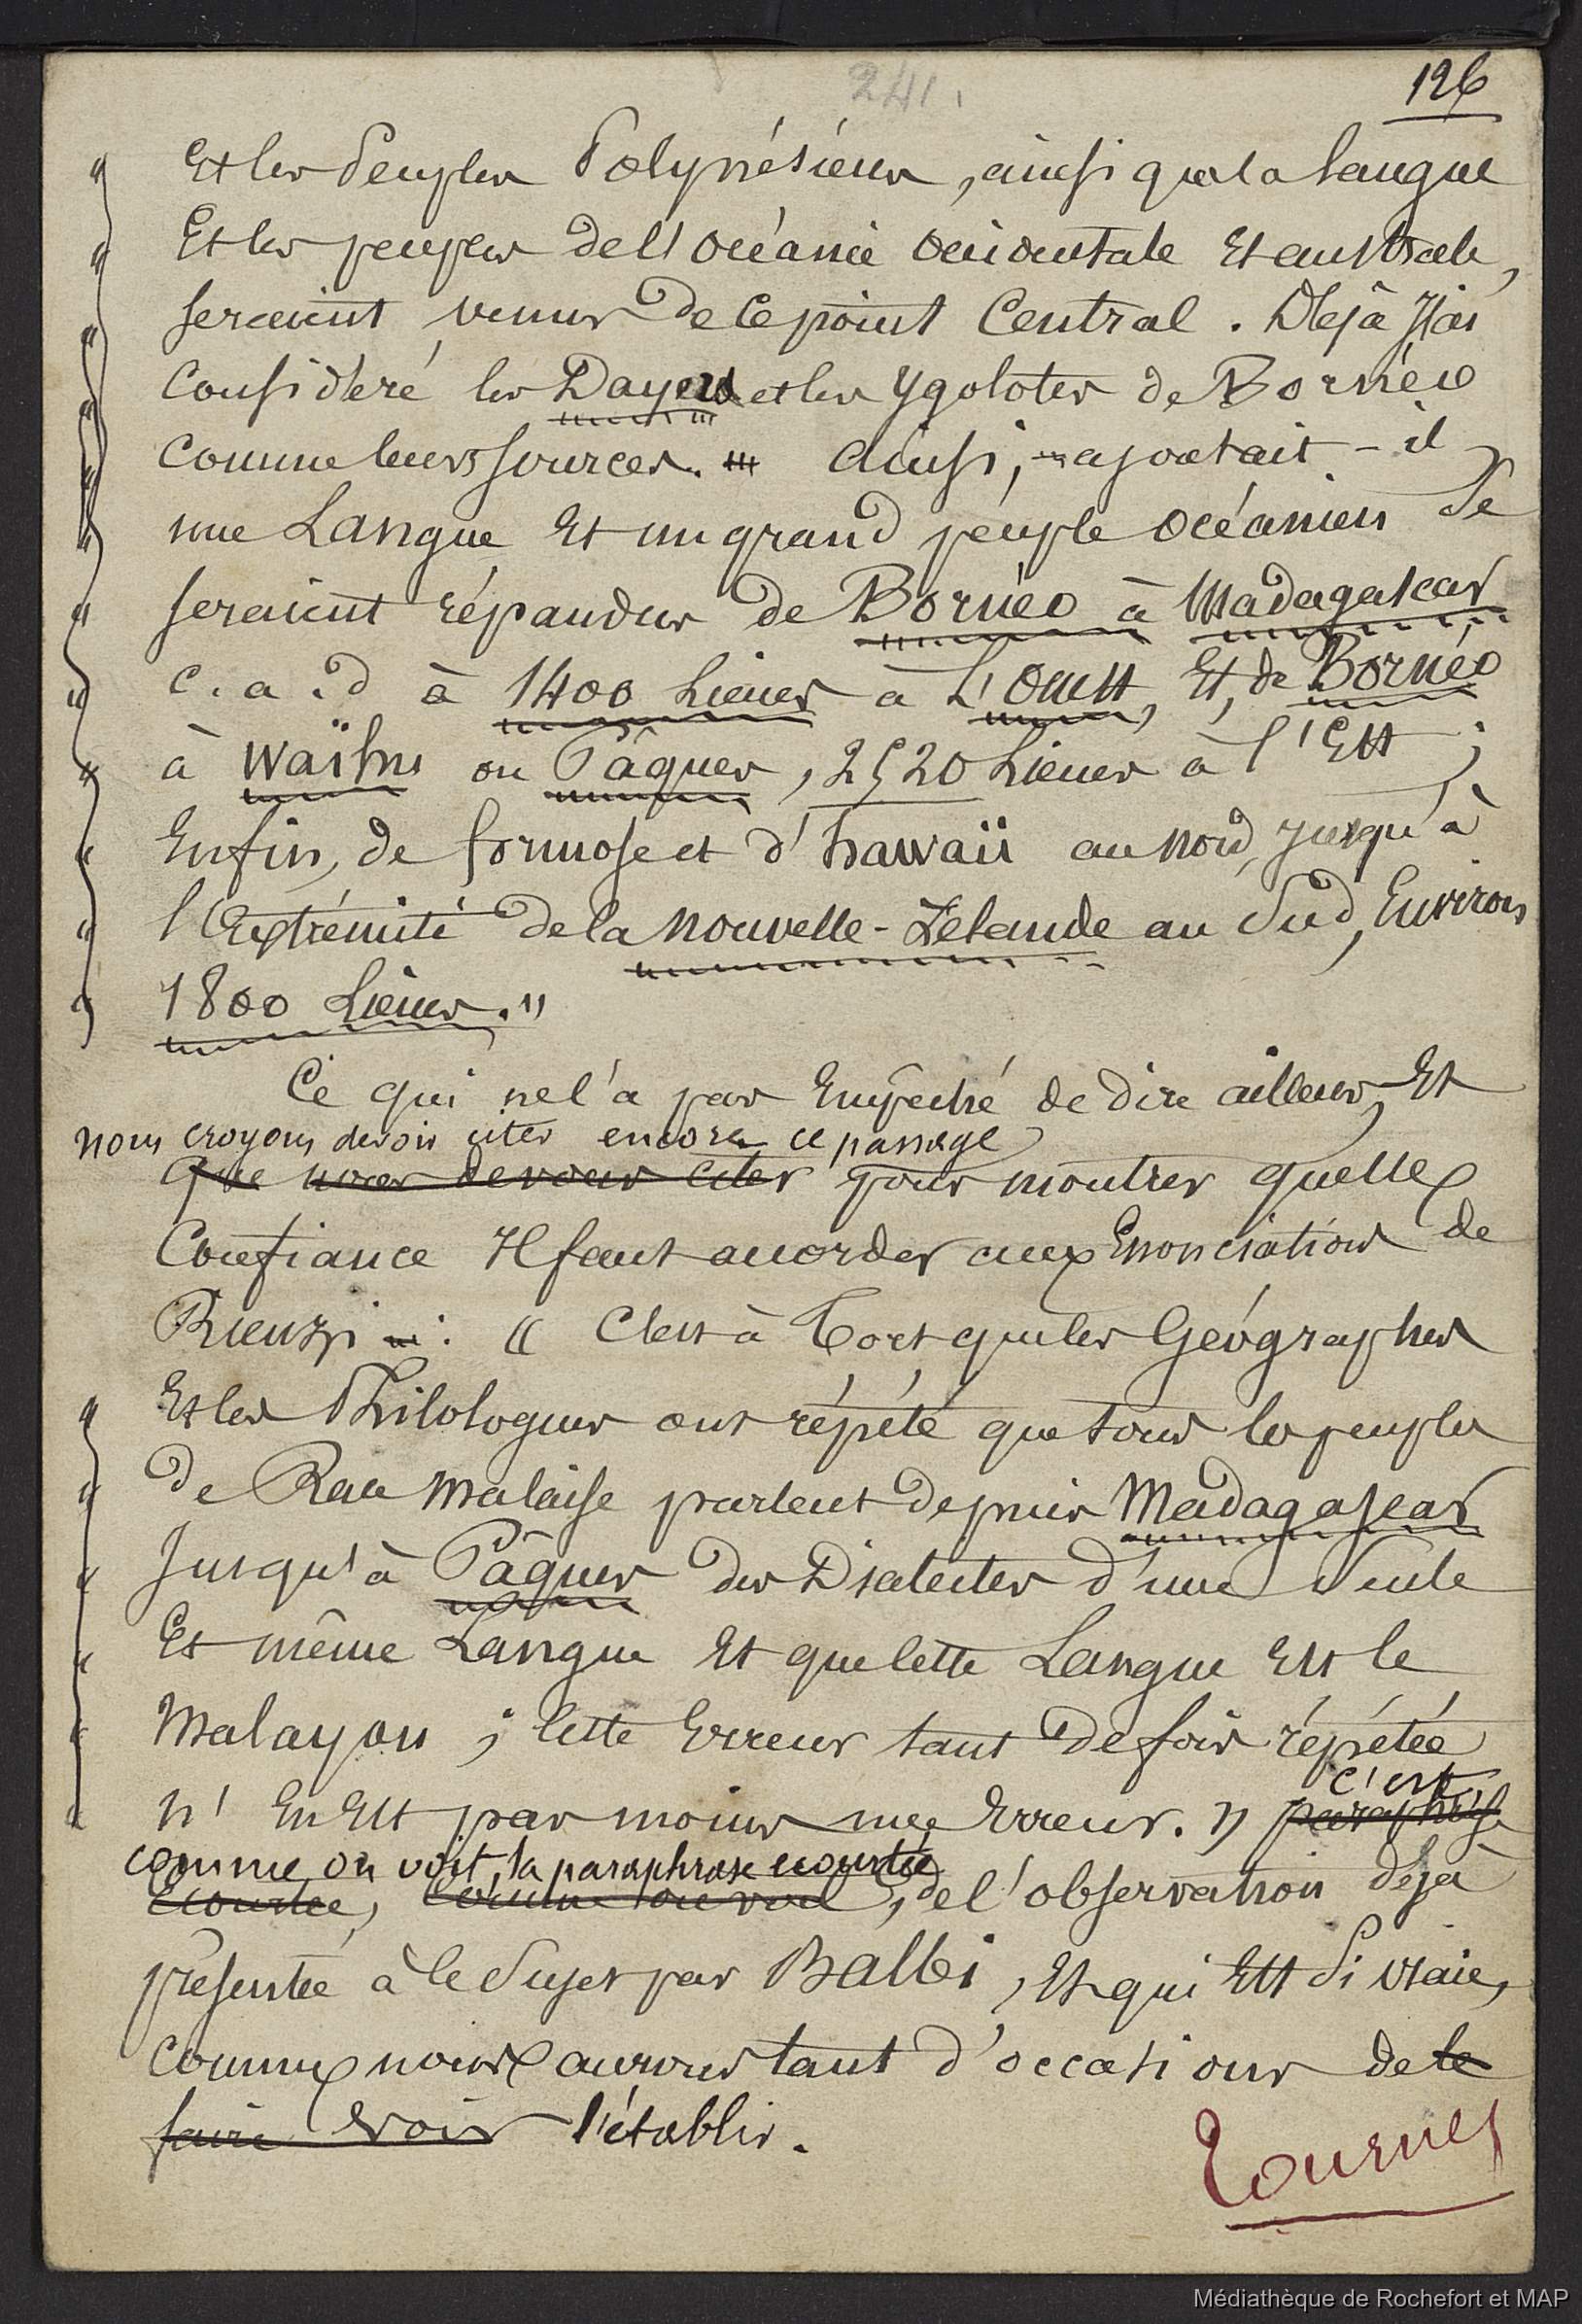 241.
126
Et les Peuples Polynésiens, ainsi que la langue
Et les peuples de l'océanie occidentale Et australe,
seraient venus de ce point Central. Déjà J'ai
Considéré les Dayers et les Ygolotes de Bornéo
comme leurs sources. Ainsi, - ajoutait - il
une Langue Et un grand peuple océanien se
seraient répandus de Bornéo à Madagascar
c. a. d à 1400 Lieues à L'Ouest, Et, de Bornéo
à Waïhu ou Pâques, 2520 Lieues à l'Est ;
Enfin, de formose et d'hawaii au nord, jusqu'à
l'Extrémité de la Nouvelle-Zélande au Sud, Environ
1800 Lieues. "
Ce qui ne l'a pas Empêché de dire ailleurs, Et
nous croyons devoir citer encore ce passage
que nous devons citer pour montrer quelle
Confiance Il faut accorder aux Enonciations de
Rienzi : « C'est à Tort que les Géographes
Et les Philologues ont répété que tous les peuples
de Race malaise parlent depuis Madagascar
Jusqu'à Pâques des Dialectes d'une Seule
Et même Langue Et que cette Langue Est le
Malayou ; cette Erreur tant de fois répétée
n'En Est pas moins une Erreur. » paraphrase
c'est
comme on voit, la paraphrase écourtée
Ecourtée, comme on voit, de l'observation déjà
présentée à ce Sujet par Balbi, Et qui Est Si vraie,
comme nous aurons tant d'occasions de le
faire voir l'établir.
Tournez
Médiathèque de Rochefort et MAP